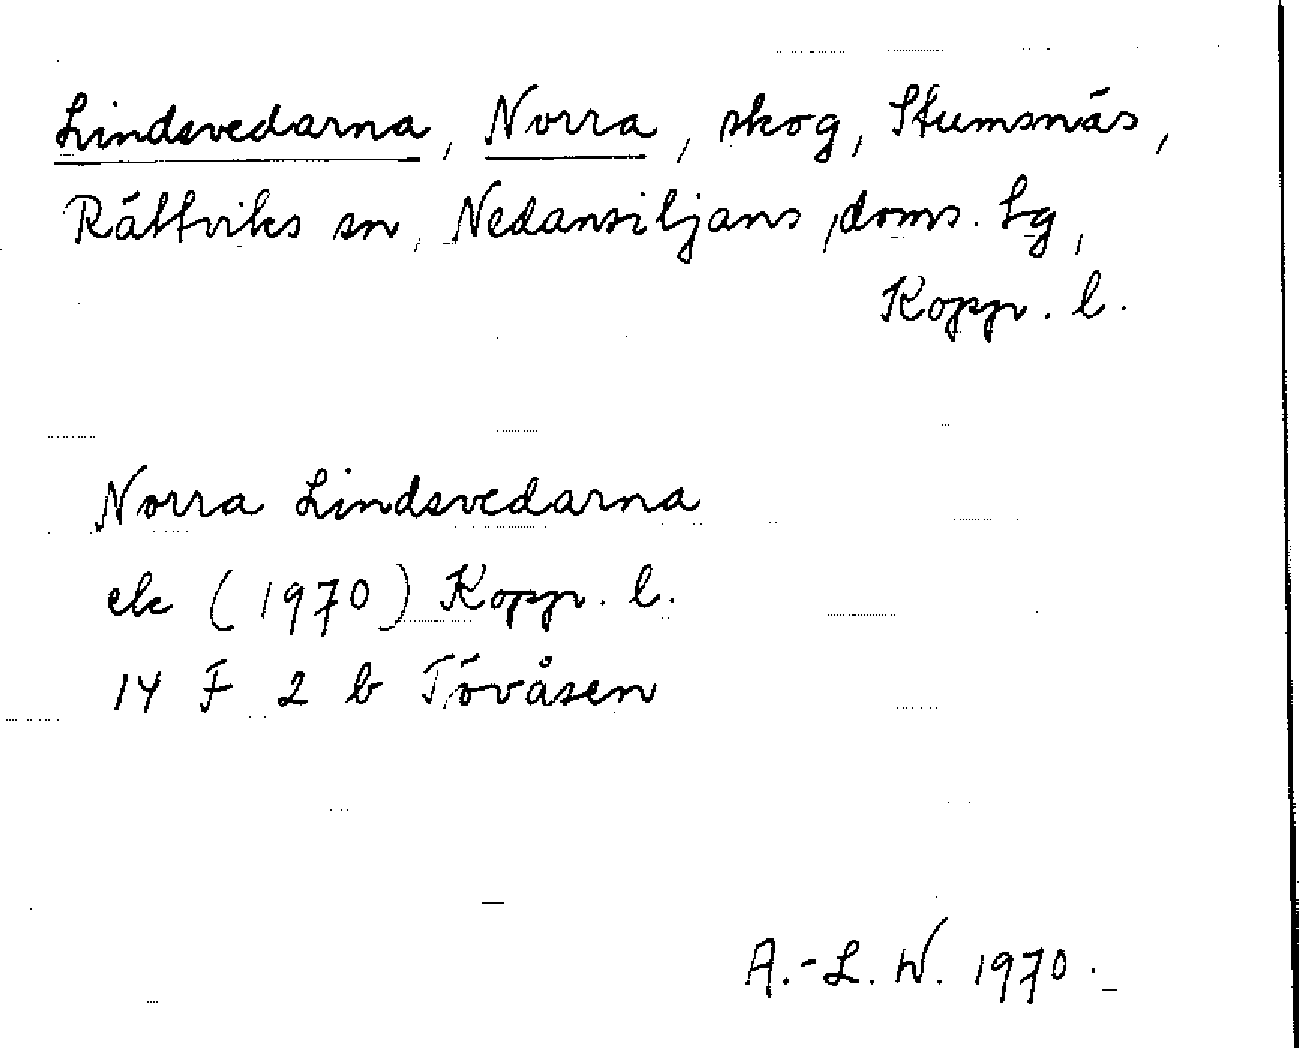 Lindsvedarna, Norra, skog, Stumsnäs,
Rättviks sn, Nedansiljans doms. tg,
Kopp. l.
Norra Lindsvedarna
ek (1970) Kopp. l.
14 F 2 b Tövåsen
A.-L. W. 1970.